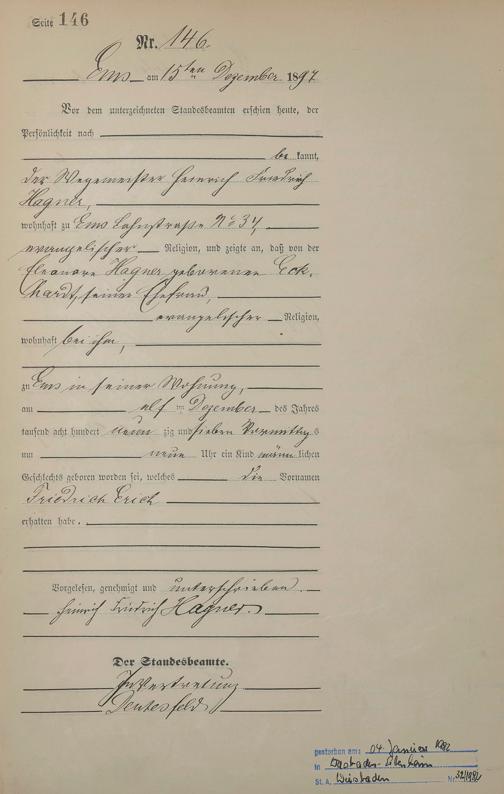 Seite 146
Nr. 146
Ems am 15ten Dezember 1897
Vor dem unterzeichneten Standesbeamten erschien heute, der
Persönlichkeit nach
be kannt,
der Wegemeister Heinrich Friedrich
Hagner,
wohnhaft zu Ems Lahnstraße No 34,
evangelischer Religion, und zeigte an, daß von der
Eleonore Hagner geborenen Eck-
hardt, seiner Ehefrau,
evangelischer Religion,
wohnhaft bei ihm,
zu Ems in seiner Wohnung,
am elf ten Dezember des Jahres
tausend acht hundert neun zig und sieben Vormittag s
um neun Uhr ein Kind männ lichen
Geschlechts geboren worden sei, welches die Vornamen
Friedrich Erich
erhalten habe.
Vorgelesen, genehmigt und unterschrieben.
Heinrich Friedrich Hagner.
Der Standesbeamte.
In Vertretung
gestorben am: 04. Januar 1982
in Wiesbaden-
St. A. Wiesbaden Nr. 32/1982